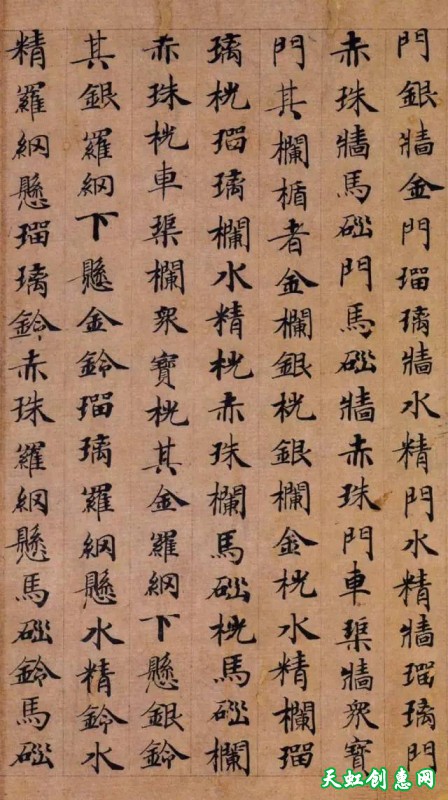 門銀牆金門瑠璃牆水精門水精牆瑠璃門
赤珠牆馬碯門馬碯牆赤珠門車渠牆衆寶
門其欄楯者金欄銀桄銀欄金桄水精欄瑠
璃桄瑠璃欄水精桄赤珠欄馬碯桄馬碯欄
赤珠桄車渠欄衆寶桄其金羅網下懸銀鈴
其銀羅網下懸金鈴瑠璃羅網懸水精鈴水
精羅網懸瑠璃鈴赤珠羅網懸馬碯鈴馬碯
天虹创惠网